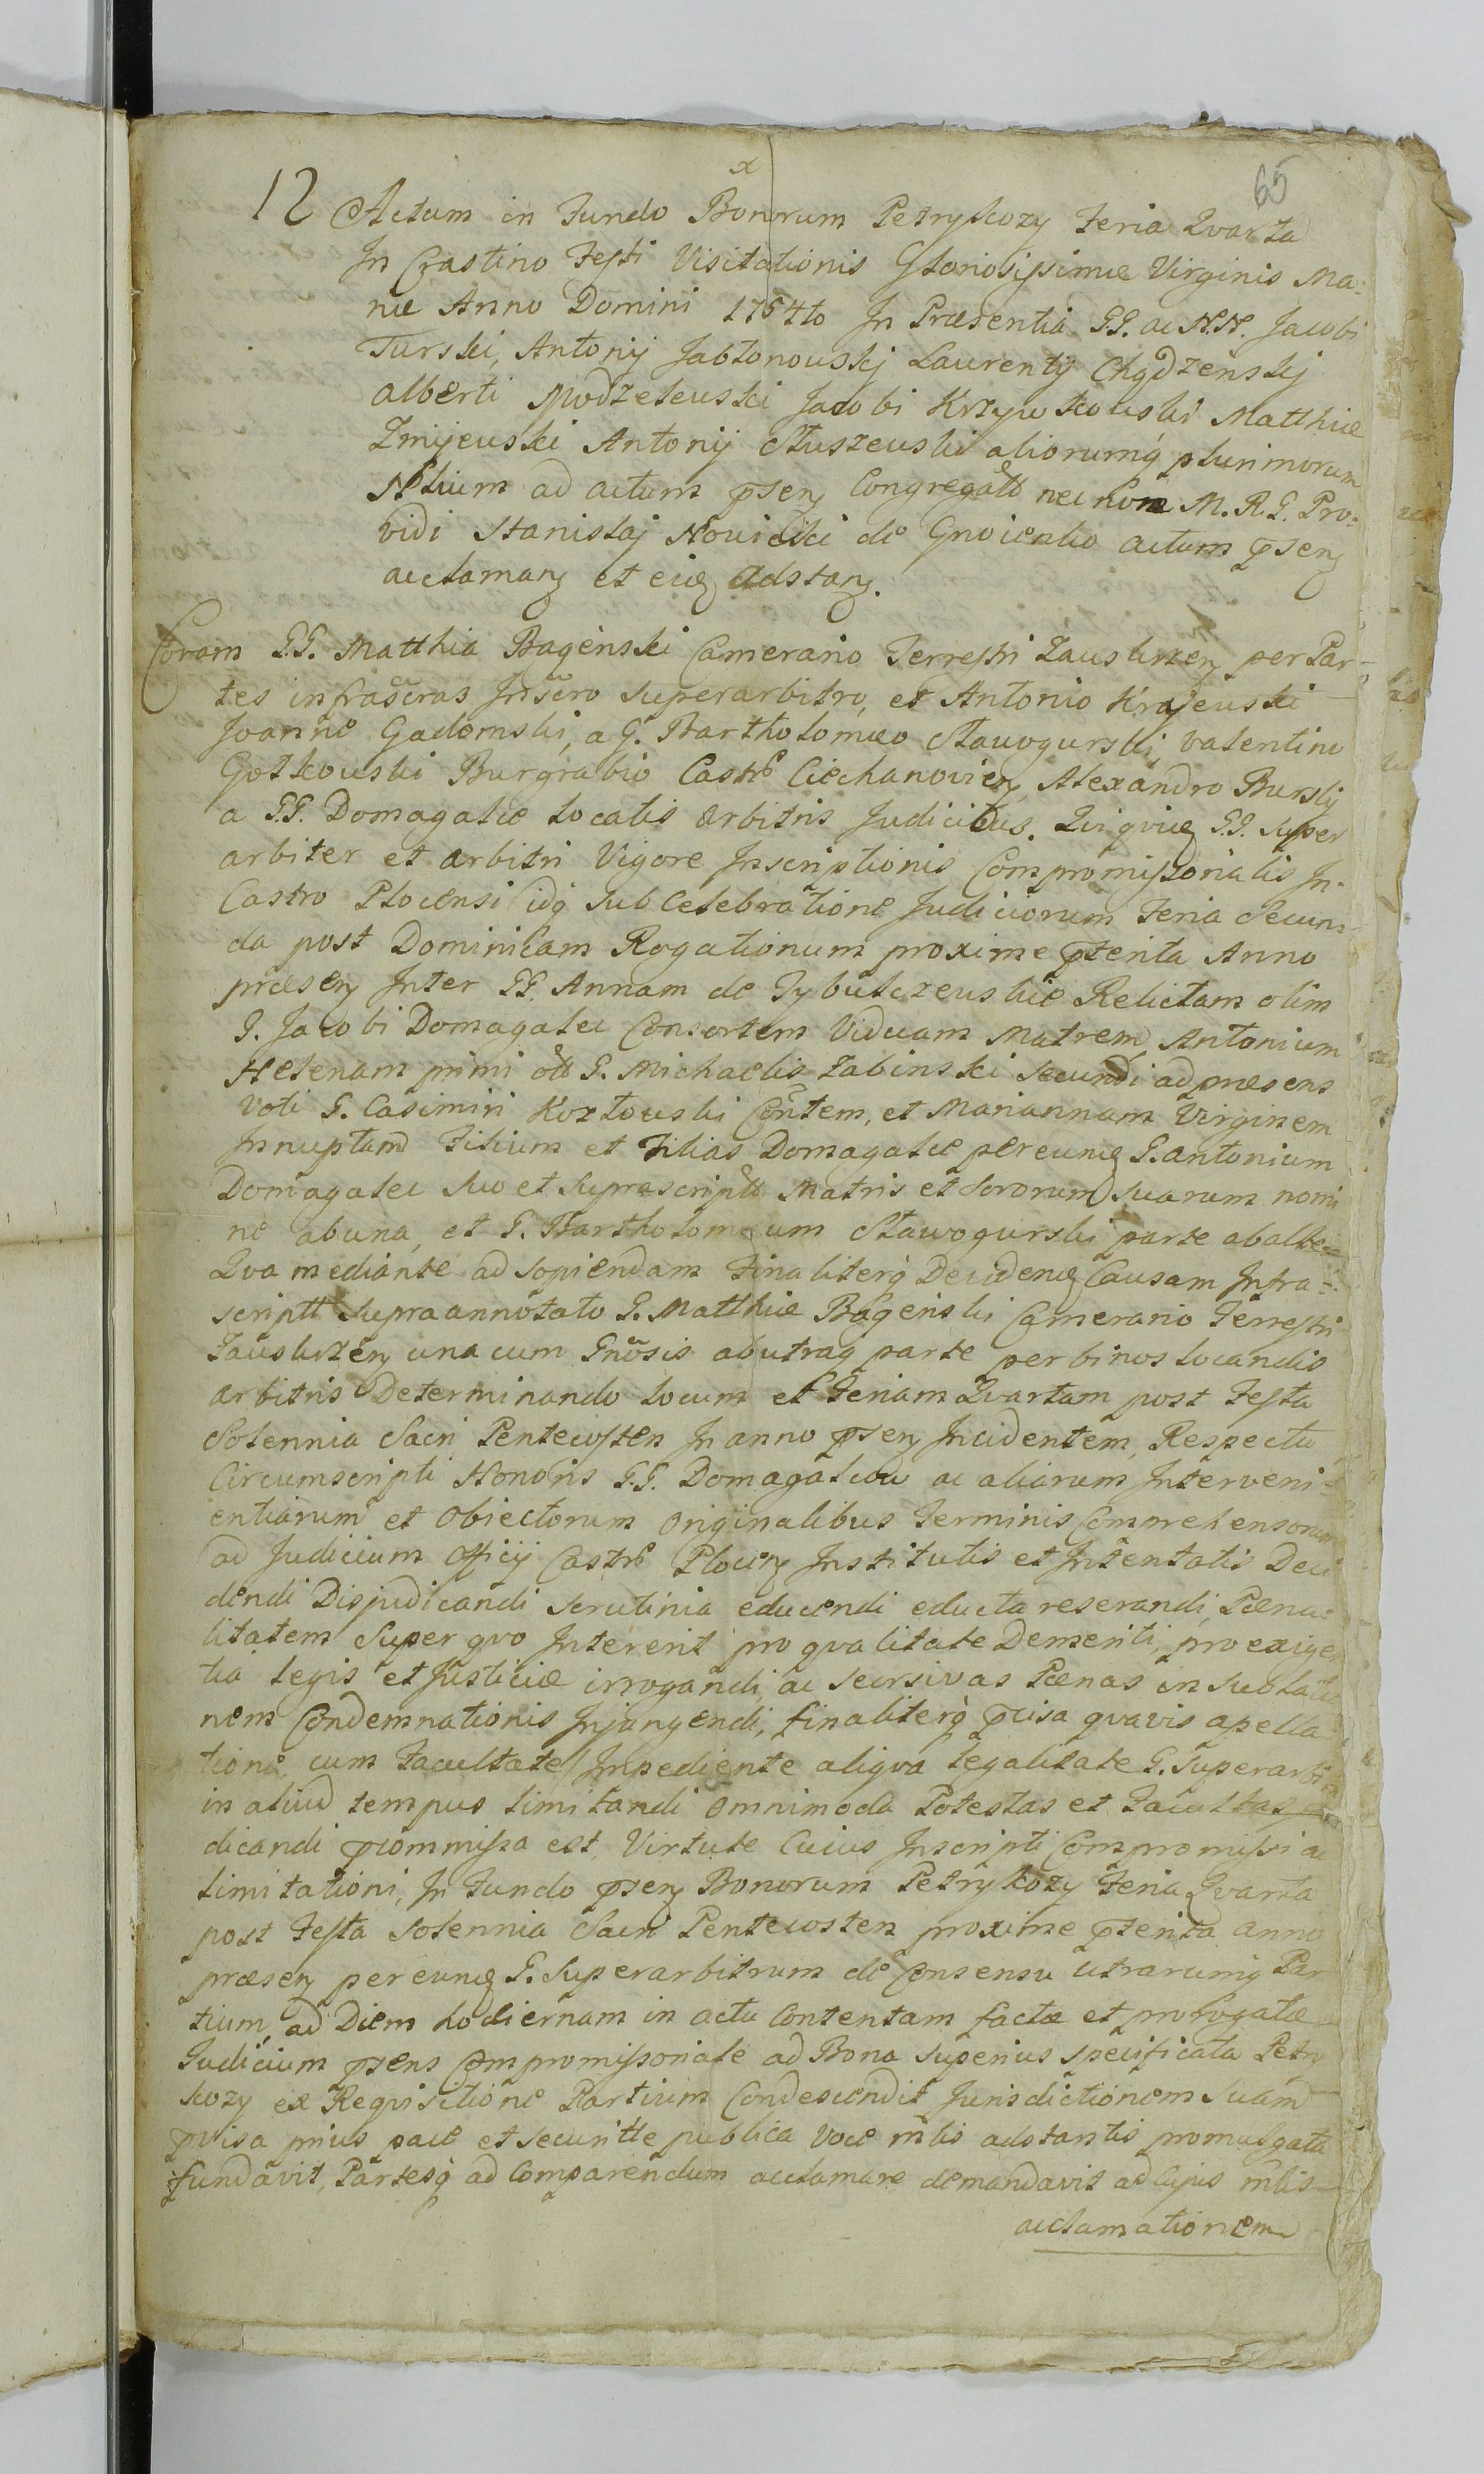 x
65
12 Actum in Fundo Bonorum Petrykozy Feria Qvarta
In Crastino Festi Visitationis Gloriosissimæ Virginis Ma:
riæ Anno Domini 1754to In Præsentia GG. ac N.N. Jacobi
Turski, Antonij Jabłonowskj Laurentij Chądzenskj
Alberti Modzelewski Jacobi Krzywkowski Matthiæ
Zmijewski Antonij Auszewski aliorumq plurimorum
Nbilium ad actum psenz Congregatt nec non M. R. G. Pro:
vidi Stanislaj Nowicki de Gnoienko actum psenz
acclamanz et eiq adstanz.
Coram GG. Matthia Bagęnski Camerario Terrestri Zauskrzen per Par-
tes infrascras Inscro Superarbitro, et Antonio Krajewski
Joanne Gadomski, a G. Bartholomæo Stawogurski, Valentino
Gotkowski Burgrabio Castr Ciechanovien, Alexandro Burskj
a GG. Domagałæ locatis arbitris Judicibus. Qui qviq GG. Super
arbiter et arbitri Vigore Inscriptionis Compromissorialis In
Castro Plocensi idq sub Celebratione Judiciorum Feria Secun
da post Dominicam Rogationum proxime pterita Anno
præsenz Inter GG. Annam de Tybulczewskie Relictam olim
G. Jacobi Domagałæ Consortem Viduam Matrem Antonium
Helenam primi ott G. Michaelis Zabinski Secundi ad præsens
Voti G. Casimiri Kozłowski Contem, et Mariannam Virginem
Innuptam Filium et Filias Domagałæ per eunq G. Antonium
Domagałæ suo et supræscriptt Matris et Sororum suarum nomi
ne ab una, et G. Bartholomeum Stawogurski parte ab alte=
Qva mediante ad sopiendam Finaliterq Decidenq Causam Infra=
scriptt supra annotato G. Matthiæ Bagenski Camerario Terrestri
Zauskrzen una cum Gnosis ab utraq parte per binos locandis
arbitris Determinando locum et Feriam Qvartam post Festa
Solennia Sacri Pentecosten In anno psenz Incidentem, Respectu
Circumscripti Honoris GG. Domagałcow ac aliarum Interveni=
entiarum et Obiectorum Originalibus Terminis Comprehensorum
ad Judicium Officij Castr Plocen Institutis et Intentatis Deci
dendi Disjudicandi Scrutinia educendi educta reserandi, Pœna=
litatem Super qvo Intererit pro qvalitate Demeriti, pro exigen
tia legis et Justiciæ irrogandi, ac seorsivas Pœnas in sublatio
nem Condemnationis Injungendi, finaliterq pcisa qvavis apella
tione, cum Facultate Impediente aliqva legalitate G. Superarbi
in aliud tempus limitandi Omnimoda Potestas et Facultas
dicandi pcommissa est, Virtute Cuius Inscripti Compromissi ac
limitationi, In Fundo psenz Bonorum Petrykozy Feria Qvarta
post Festa Solennia Sacri Pentecosten proxime pterita anno
præsenz per eunq G. Superarbitrum de Consensu utrarumq Par
tium, ad Diem hodiernam in actu Contentam factæ et prorogatæ
Judicium psens Compromissoriale ad Bona Superius specificata Petry
kozy ex Reqvisitione Partium Condescendit Jurisdictionem Suam
pvisa prius pace et securitte publica voce mlis adstantis promulgata
fundavit, Partesq ad Comparendum acclamare demandavit ad Cujus mlis
acclamationem